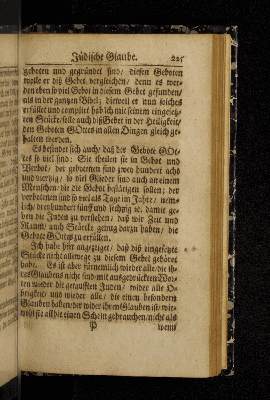 Jüdische Glaube. 225
geboten und gegründet sind/ diesen Geboten
wolle er diß Gebet vergleichen/ denn es wer-
den eben so viel Gebot in diesem Gebet gefunden/
als in der gantzen Bibel; dieweil er nun solches
erfüllet und complirt hab/ich mit seinem eingesetz-
ten Stücke/ solle auch diß Gebet in der Heiligkeit/
den Geboten GOttes in allen Dingen gleich ge-
halten werden.
Es befindet sich auch/ daß der Gebote GOt-
tes so viel sind: Sie theilen sie in Gebot und
Verbot/ der gebotenen sind zwey hundert acht
und viertzig/ so viel Glieder sind auch an einem
Menschen/ die die Gebot bestättigen sollen; der
verbotenen sind so viel als Tag im Jahre/ nem-
lich dreyhundert fünff und sechtzig/ ꝛc. damit ge-
ben die Juden zu verstehen/ daß wir Zeit und
Raum/ auch Stärcke genug darzu haben/ die
Gebote GOttes zu erfüllen.
Ich habe hier angezeiget/ daß diß eingesetzte
Stücke nicht allewege zu diesem Gebet gehöret
habe. Es ist aber fürnemlich wieder alle/ die ih-
res Glaubens nicht sind mit ausgedrückten Wor-
ten wieder die getaufften Juden/ wider alle O-
brigkeit/ und wieder alle/ die einen besondern
Glauben haben/ der wider ihren Glauben ist/ wie-
wol sie allhie einen Schein gebrauchen/ nicht als
P wenn